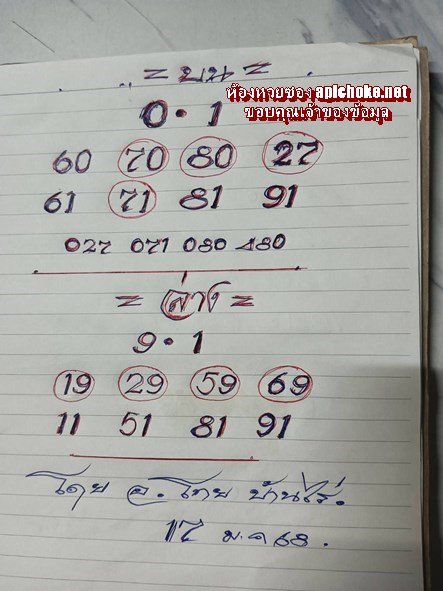 = บน =
ห้องหวยซอง apichoke.net
ขอบคุณเจ้าของข้อมูล
0 • 1
60 70 80 27
61 71 81 91
027 071 080 480
= ล่าง =
9 • 1
19 29 59 69
11 51 81 91
โดย อ. ไทย บ้านไร่.
17 ม.ค 68.